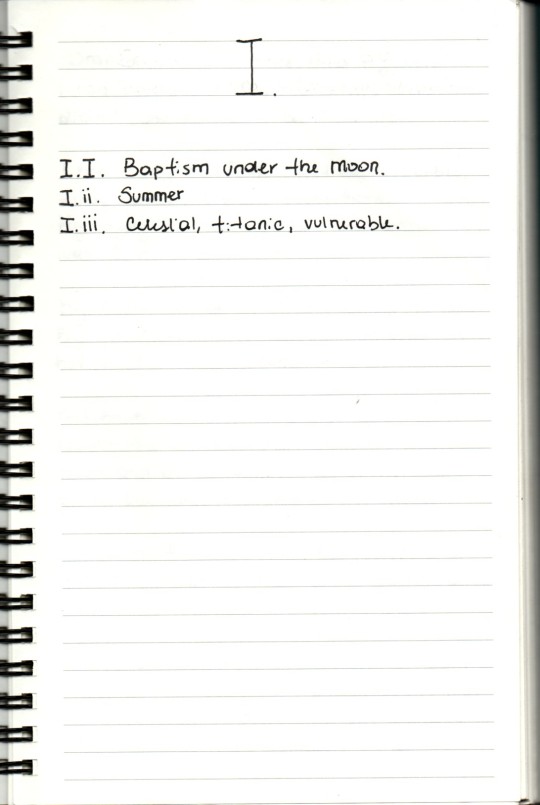 I.
I.I. Baptism under the moon.
I.ii. Summer
I.iii. Celestial, titanic, vulnerable.